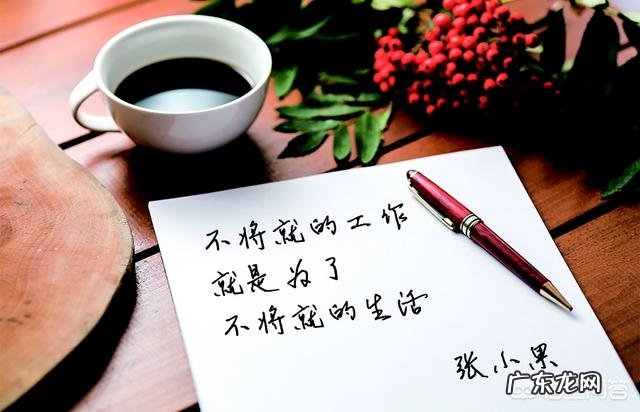 不将就的工作
就是为了
不将就的生活
张小果
广东龙网